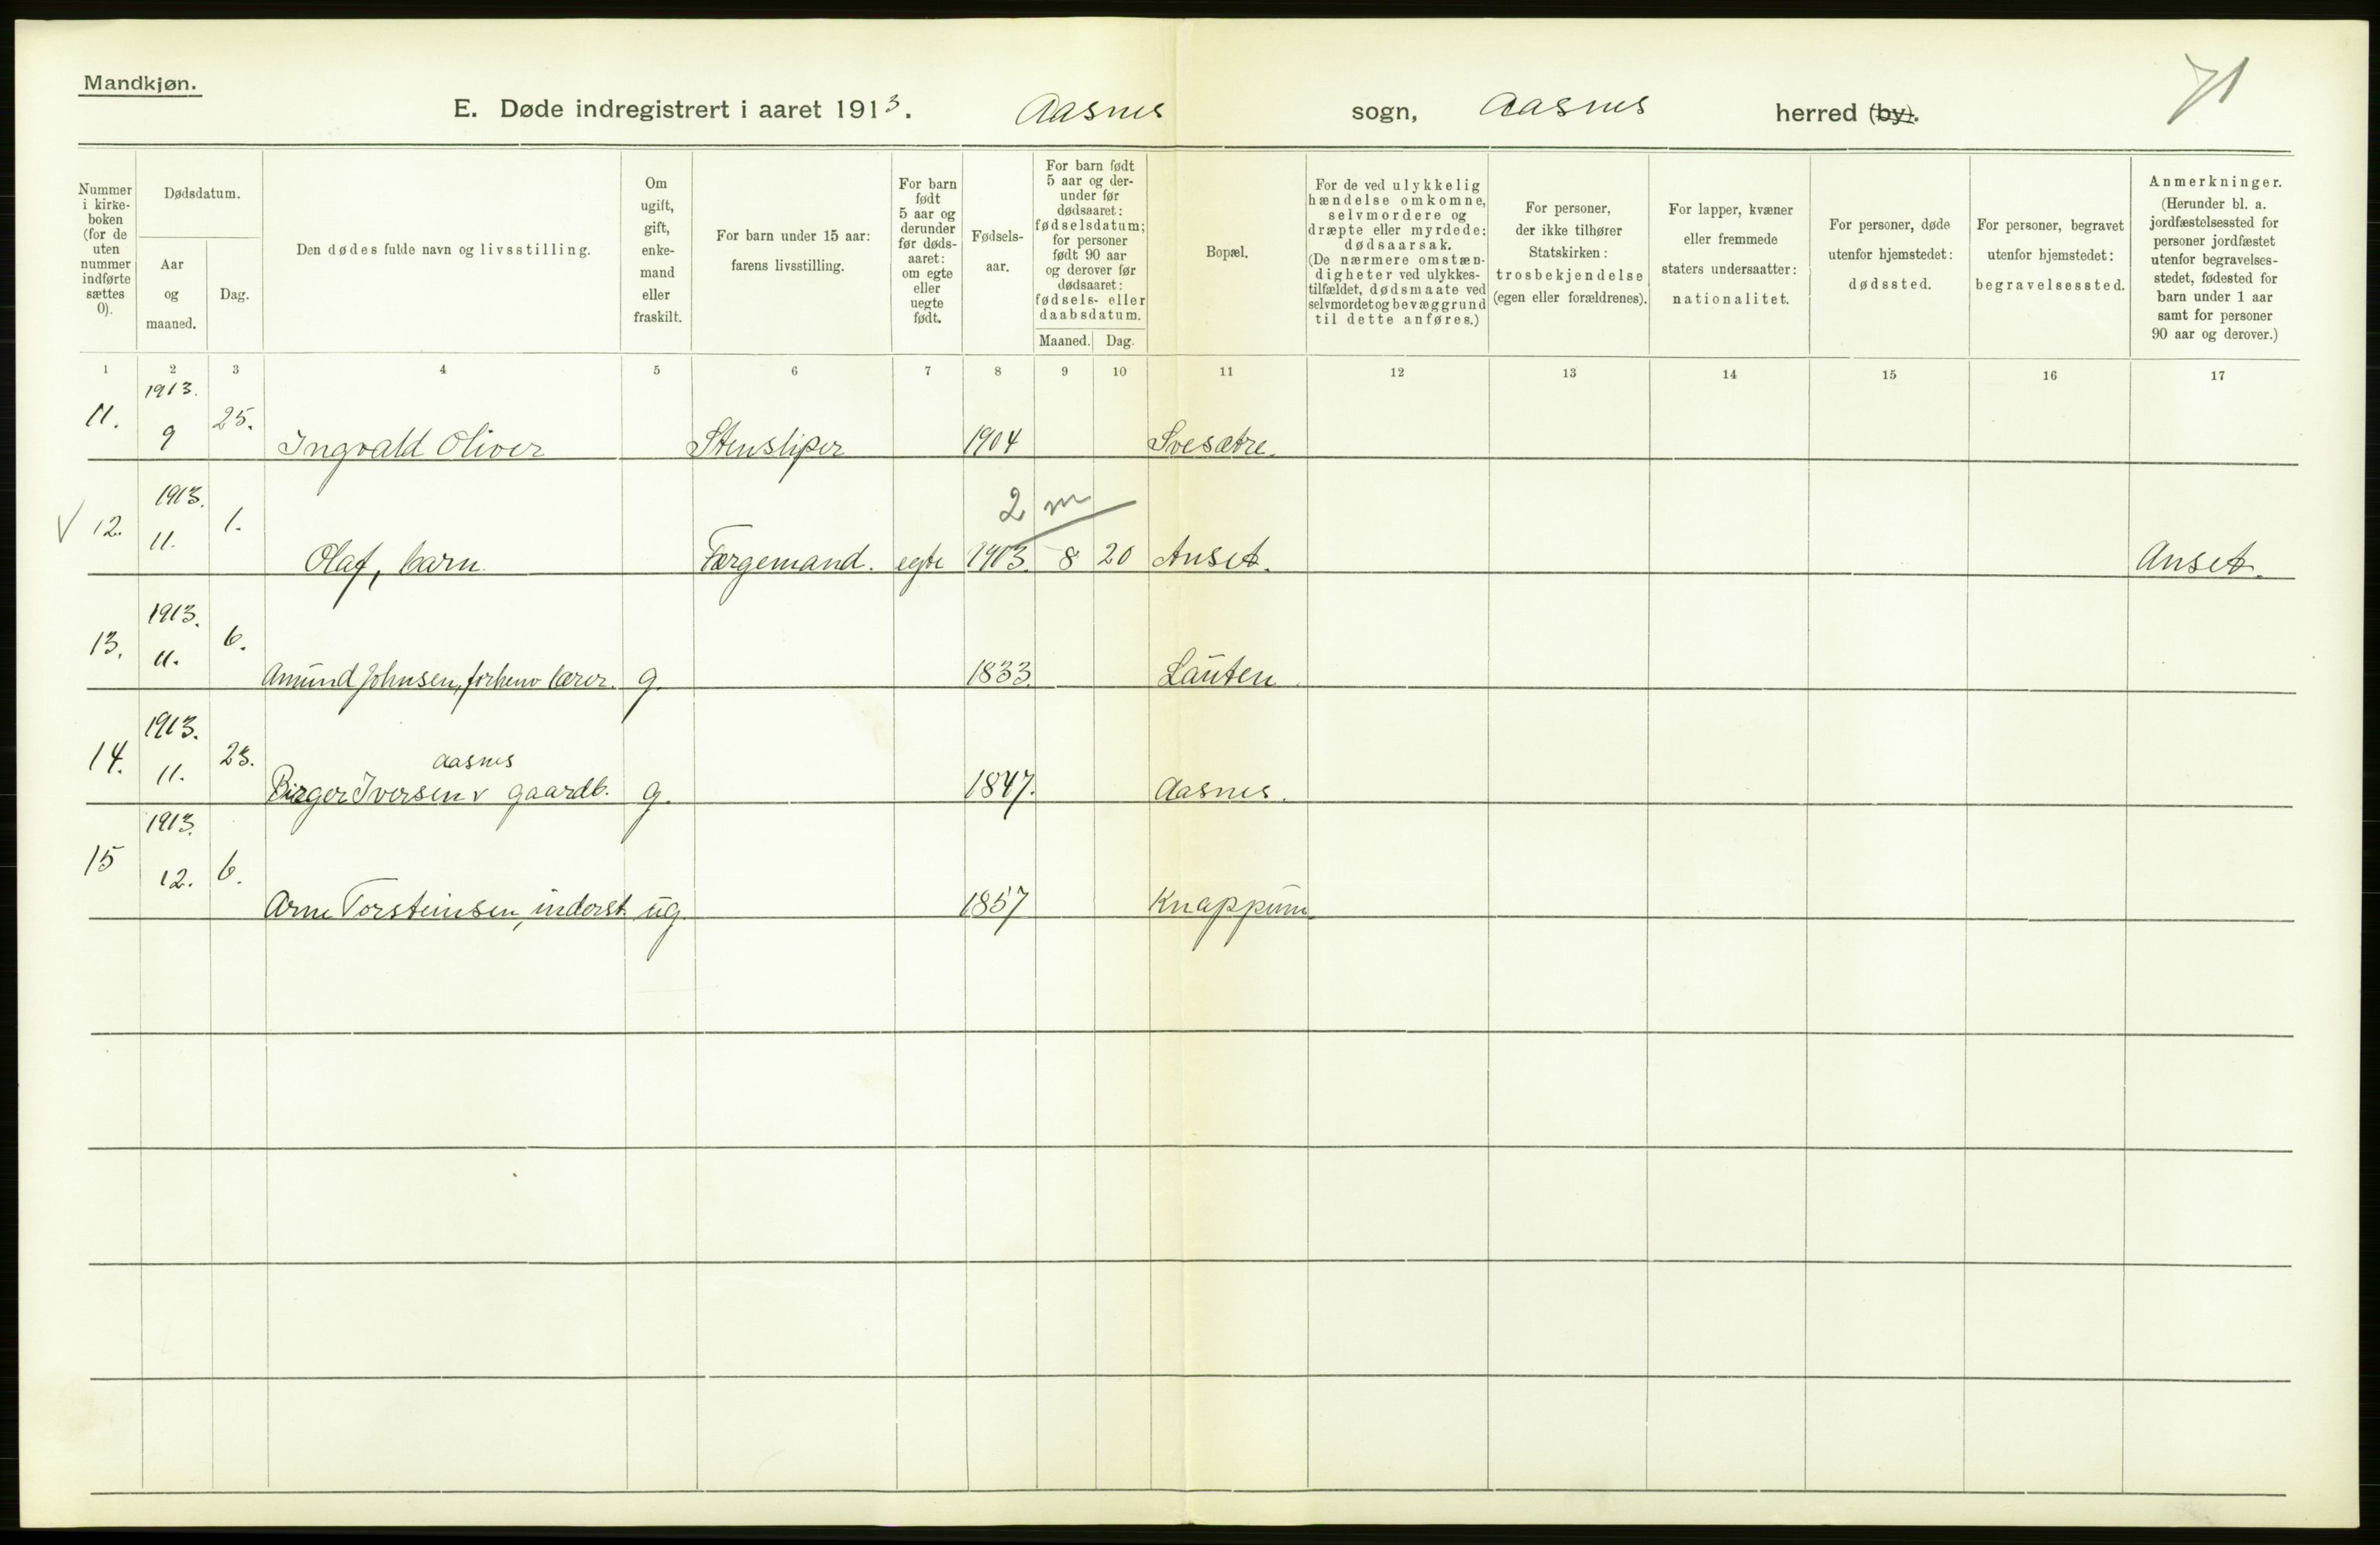 Mandkjøn.
71
E. Døde indregistrert i aaret 1913. Aasnes sogn, Aasnes herred (by).
Nummer i kirke- boken (for de uten nummer indførte sættes 0).
Dødsdatum.
Aar og maaned.
Dag.
Den dødes fulde navn og livsstilling.
Om ugift, gift, enke- mand eller fraskilt.
For barn under 15 aar: farens livsstilling.
For barn født 5 aar og derunder før døds- aaret: om egte eller uegte født.
Fødsels- aar.
For barn født 5 aar og der- under før dødsaaret: fødselsdatum; for personer født 90 aar og derover før dødsaaret: fødsels- eller daabsdatum.
Maaned. Dag.
Bopæl.
For de ved ulykkelig hændelse omkomne, selvmordere og dræpte eller myrdede: dødsaarsak. (De nærmere omstæn- digheter ved ulykkes- tilfældet, dødsmaate ved selvmordet og bevæggrund til dette anføres.)
For personer, der ikke tilhører Statskirken: trosbekjendelse (egen eller forældrenes).
For lapper, kvæner eller fremmede staters undersaatter: nationalitet.
For personer, døde utenfor hjemstedet: dødssted.
For personer, begravet utenfor hjemstedet: begravelsessted.
Anmerkninger. (Herunder bl. a. jordfæstelsessted for personer jordfæstet utenfor begravelses- stedet, fødested for barn under 1 aar samt for personer 90 aar og derover.)
1 2 3 4 5 6 7 8 9 10 11 12 13 14 15 16 17
11. 1913. 9 25. Ingvald Oliver Stensliper 1904 Svesætre.
2 m
V 12. 1913. 11. 1. Olaf, barn. Færgemand. egte 1903. 8 20 Anset. Anset.
13. 1913. 11. 6. Amund Johnsen, forhenv lærer. g. 1833. Lauten
14. 1913. 11. 23. Birger Iversen v Aasnes gaardb. g. 1847. Aasnes.
15 1913. 12. 6. Arne Torsteinsen, inderst. ug. 1857 Knappum